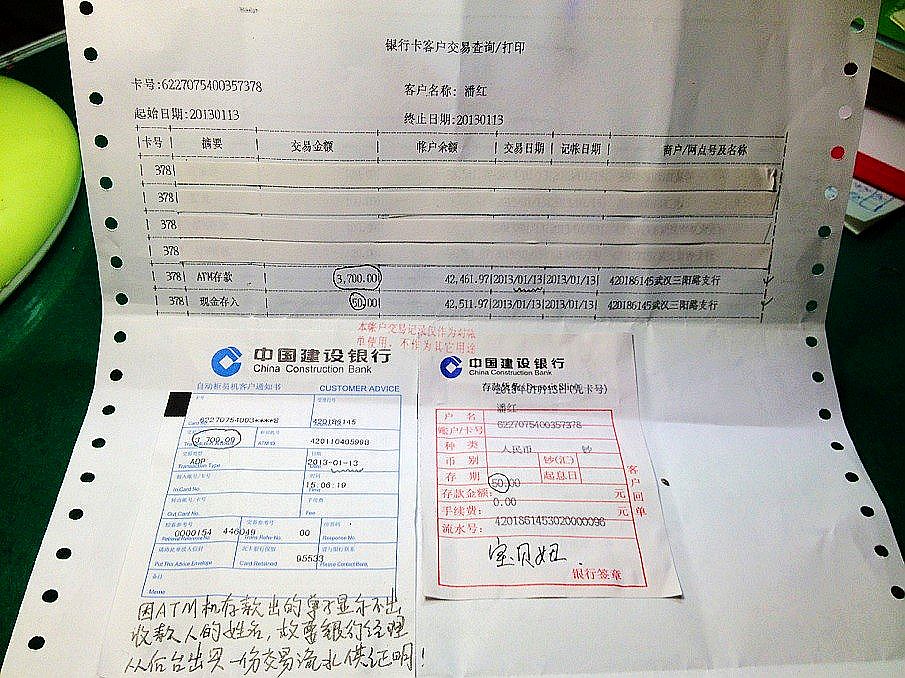 银行卡客户交易查询/打印
卡号:6227075400357378 客户名称: 潘红
起始日期:20130113 终止日期:20130113
卡号 摘要 交易金额 帐户余额 交易日期 记帐日期 商户/网点号及名称
378
378
378
378
378 ATM存款 3,700.00 42,461.97 2013/01/13 2013/01/13 420186145武汉三阳路支行
378 现金存入 50.00 42,511.97 2013/01/13 2013/01/13 420186145武汉三阳路支行
本账户交易记录仅作为对账
单使用，不作为其它用途
中国建设银行
China Construction Bank
自动柜员机客户通知书 CUSTOMER ADVICE
Card No. 62270754003****8 420186145
3,700.00 ATM ID 420110405998
ADP 2013-01-13
Transaction Type Date
15:06:19
In Card No. Time
Out Card No. Fee
0000154 446049 00
Response No.
95533
Put This Advice Envelope Card Retained Please Contact Bank.
Memo
因ATM机存款出的单不显示不出
收款人的姓名，故要银行经理
从后台出具一份交易流水供证明！
中国建设银行
China Construction Bank
存款凭条 Deposit Slip
2013年01月13日(凭卡号)
户 名 潘红
账户/卡号 6227075400357378
种 类 人民币 钞
币 别 钞(汇)
存 期 起息日
存款金额: 50.00 元
手续费: 0.00 元
流水号: 4201861453020000096
客户回单
银行签章